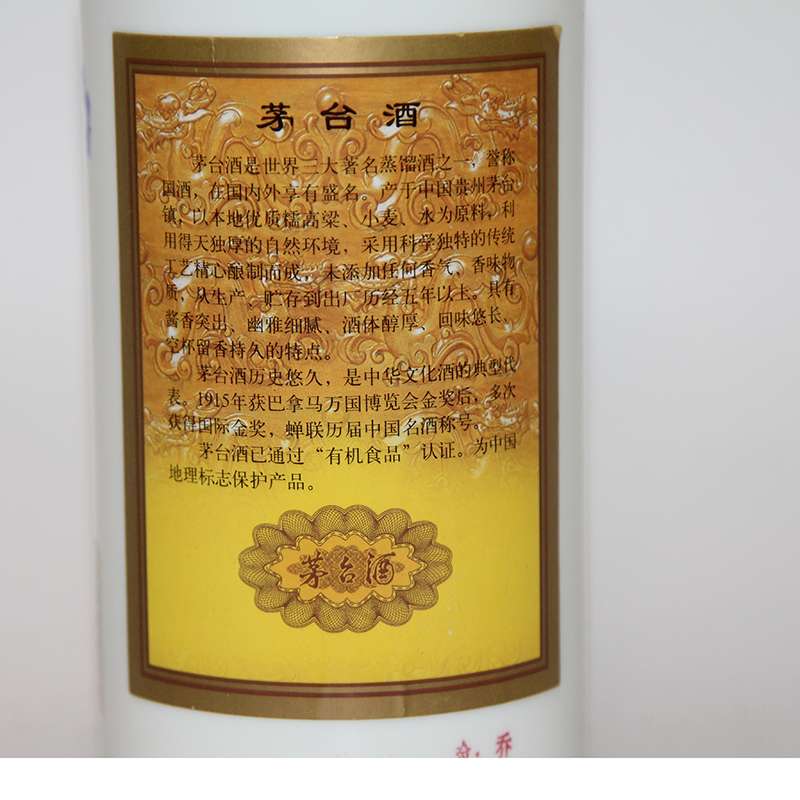 茅台酒
茅台酒是世界三大著名蒸馏酒之一，誉称
国酒，在国内外享有盛名。产于中国贵州茅台
镇，以本地优质糯高粱、小麦、水为原料，利
用得天独厚的自然环境，采用科学独特的传统
工艺精心酿制而成，未添加任何香气、香味物
质，从生产、贮存到出厂历经五年以上。具有
酱香突出、幽雅细腻、酒体醇厚、回味悠长、
空杯留香持久的特点。
茅台酒历史悠久，是中华文化酒的典型代
表。1915年获巴拿马万国博览会金奖后，多次
获得国际金奖，蝉联历届中国名酒称号。
茅台酒已通过“有机食品”认证。为中国
地理标志保护产品。
茅台酒
乔